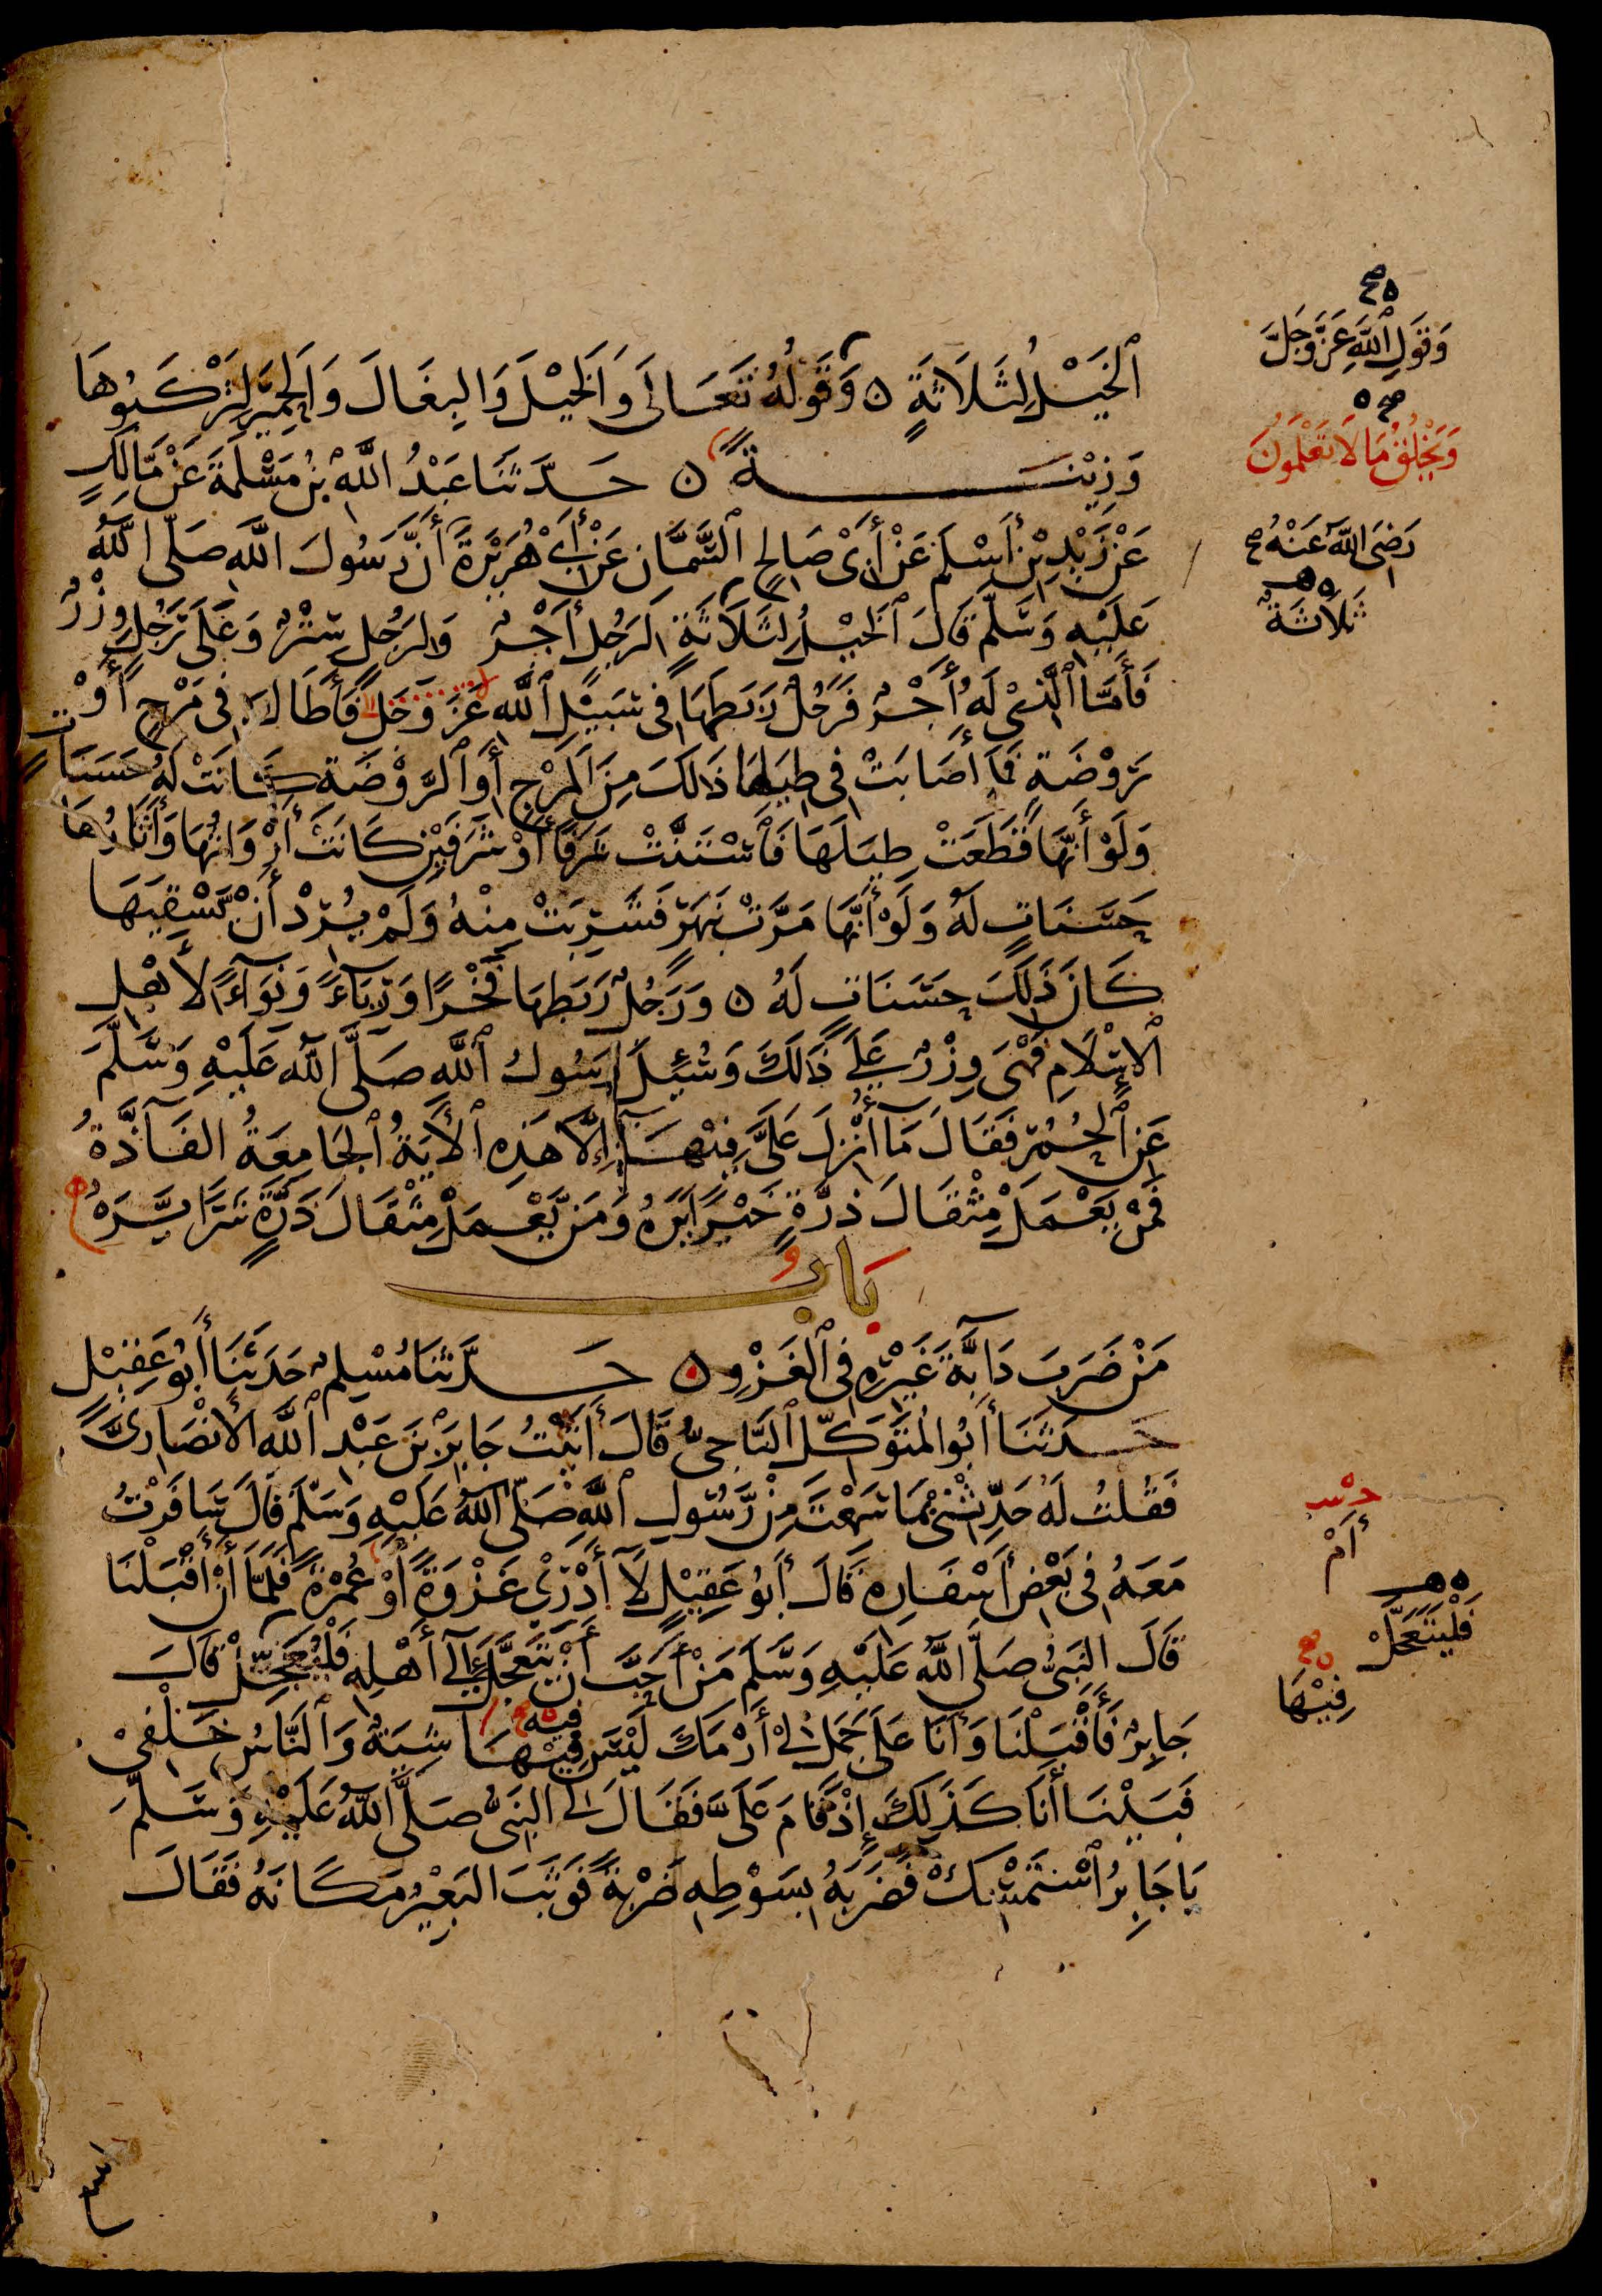 ٱلْخَيْلُ لِثَلَاثَةٍ ۝ وَقَوْلُهُ تَعَالَى وَالْخَيْلَ وَالبِغَالَ وَالْحَمِيْرَ لِتَرْكَبُوهَا
وَزِيْنَةً ۝ حَدَّثَنَا عَبْدُ اللَّهِ بْنُ مَسْلَمَةَ عَنْ مَّالِكٍ
عَنْ زَيْدِ بْنِ أَسْلَمَ عَنْ أَبِىْ صَالِحٍ ٱلسَّمَّانِ عَنْ أَبِىْ هُرَيْرَةَ أَنَّ رَسُولَ اللَّهِ صَلَّى اللَّهُ
عَلَيْهِ وَسَلَّمَ قَالَ ٱلْخَيْلُ لِثَلَاثَةٍ لِرَجُلٍ أَجْرٌ وَلِرَجُلٍ سِتْرٌ وَعَلَى رَجُلٍ وِزْرٌ
فَأَمَّا ٱلَّذِىْ لَهُ أَجْرٌ فَرَجُلٌ رَبَطَهَا فِى سَبِيْلِ ٱللَّهِ عَزَّ وَجَلَّ فَأَطَالَ فِى مَرْجٍ أَوْ
رَوْضَةٍ فَمَا أَصَابَتْ فِى طِيَلِهَا ذَلِكَ مِنَ الْمَرْجِ أَوِ ٱلرَّوْضَةِ كَانَتْ لَهُ حَسَنَاتٍ
وَلَوْ أَنَّهَا قَطَعَتْ طِيَلَهَا فَٱسْتَنَّتْ شَرَفًا أَوْ شَرَفَيْنِ كَانَتْ أَرْوَاثُهَا وَآثَارُهَا
حَسَنَاتٍ لَهُ وَلَوْ أَنَّهَا مَرَّتْ بِنَهَرٍ فَشَرِبَتْ مِنْهُ وَلَمْ يُرِدْ أَنْ يَّسْقِيَهَا
كَانَ ذَلِكَ حَسَنَاتٍ لَهُ ۝ وَرَجُلٌ رَبَطَهَا فَخْرًا وَرِئَآءً وَنِوَآءً لِأَهْلِ
ٱلْإِسْلَامِ فَهْىَ وِزْرٌ عَلَى ذَلِكَ وَسُئِلَ رَسُولُ ٱللَّهِ صَلَّى اللَّهُ عَلَيْهِ وَسَلَّمَ
عَنِ ٱلْحُمُرِ فَقَالَ مَا أُنْزِلَ عَلَىَّ فِيْهَا إِلَّا هَذِهِ ٱلْآيَةُ ٱلْجَامِعَةُ الفَآذَّةُ
فَمَنْ يَعْمَلْ مِثْقَالَ ذَرَّةٍ خَيْرًا يَرَهُ وَمَنْ يَّعْمَلْ مِثْقَالَ ذَرَّةٍ شَرًّا يَّرَهُ
بَابُ
مَنْ ضَرَبَ دَآبَّةَ غَيْرِهِ فِى ٱلْغَزْوِ ۝ حَدَّثَنَا مُسْلِمٌ حَدَّثَنَا أَبُو عَقِيْلٍ
حَدَّثَنَا أَبُو الْمُتَوَكِّلِ ٱلنَّاجِىُّ قَالَ أَتَيْتُ جَابِرَ بْنَ عَبْدِ ٱللَّهِ الْأَنْصَارِىَّ
فَقُلْتُ لَهُ حَدِّثْنِىْ بِمَا سَمِعْتَ مِنْ رَّسُولِ ٱللَّهِ صَلَّى اللَّهُ عَلَيْهِ وَسَلَّمَ قَالَ سَافَرْتُ
مَعَهُ فِى بَعْضِ أَسْفَارِهِ قَالَ أَبُو عَقِيْلٍ لَا أَدْرِىْ غَزْوَةً أَوْ عُمْرَةً فَلَمَّا أَنْ أَقْبَلْنَا
قَالَ النَّبِىُّ صَلَّى اللَّهُ عَلَيْهِ وَسَلَّمَ مَنْ أَحَبَّ أَنْ يَّتَعَجَّلَ إِلَى أَهْلِهِ فَلْيُعَجِّلْ قَالَ
جَابِرٌ فَأَقْبَلْنَا وَأَنَا عَلَى جَمَلٍ لِىْ أَرْمَكَ لَيْسَ فِيْهَا فِيْهِ شِيَةٌ وَٱلنَّاسُ خَلْفِىْ
فَبَيْنَا أَنَا كَذَلِكَ إِذْ قَامَ عَلَىَّ فَقَالَ لِى النَّبِىُّ صَلَّى اللَّهُ عَلَيْهِ وَسَلَّمَ
يَا جَابِرُ ٱسْتَمْسِكْ فَضَرَبَهُ بِسَوْطِهِ ضَرْبَةً فَوَثَبَ البَعِيْرُ مَكَانَهُ فَقَالَ
وَقَوْلِ ٱللَّهِ عَزَّ وَجَلَّ
وَيَخْلُقُ مَا لَا تَعْلَمُونَ
رَضِىَ اللَّهُ عَنْهُ
ثَلَاثَةٌ
أَمْ
فَلْيَتَعَجَّلْ
فِيْهَا